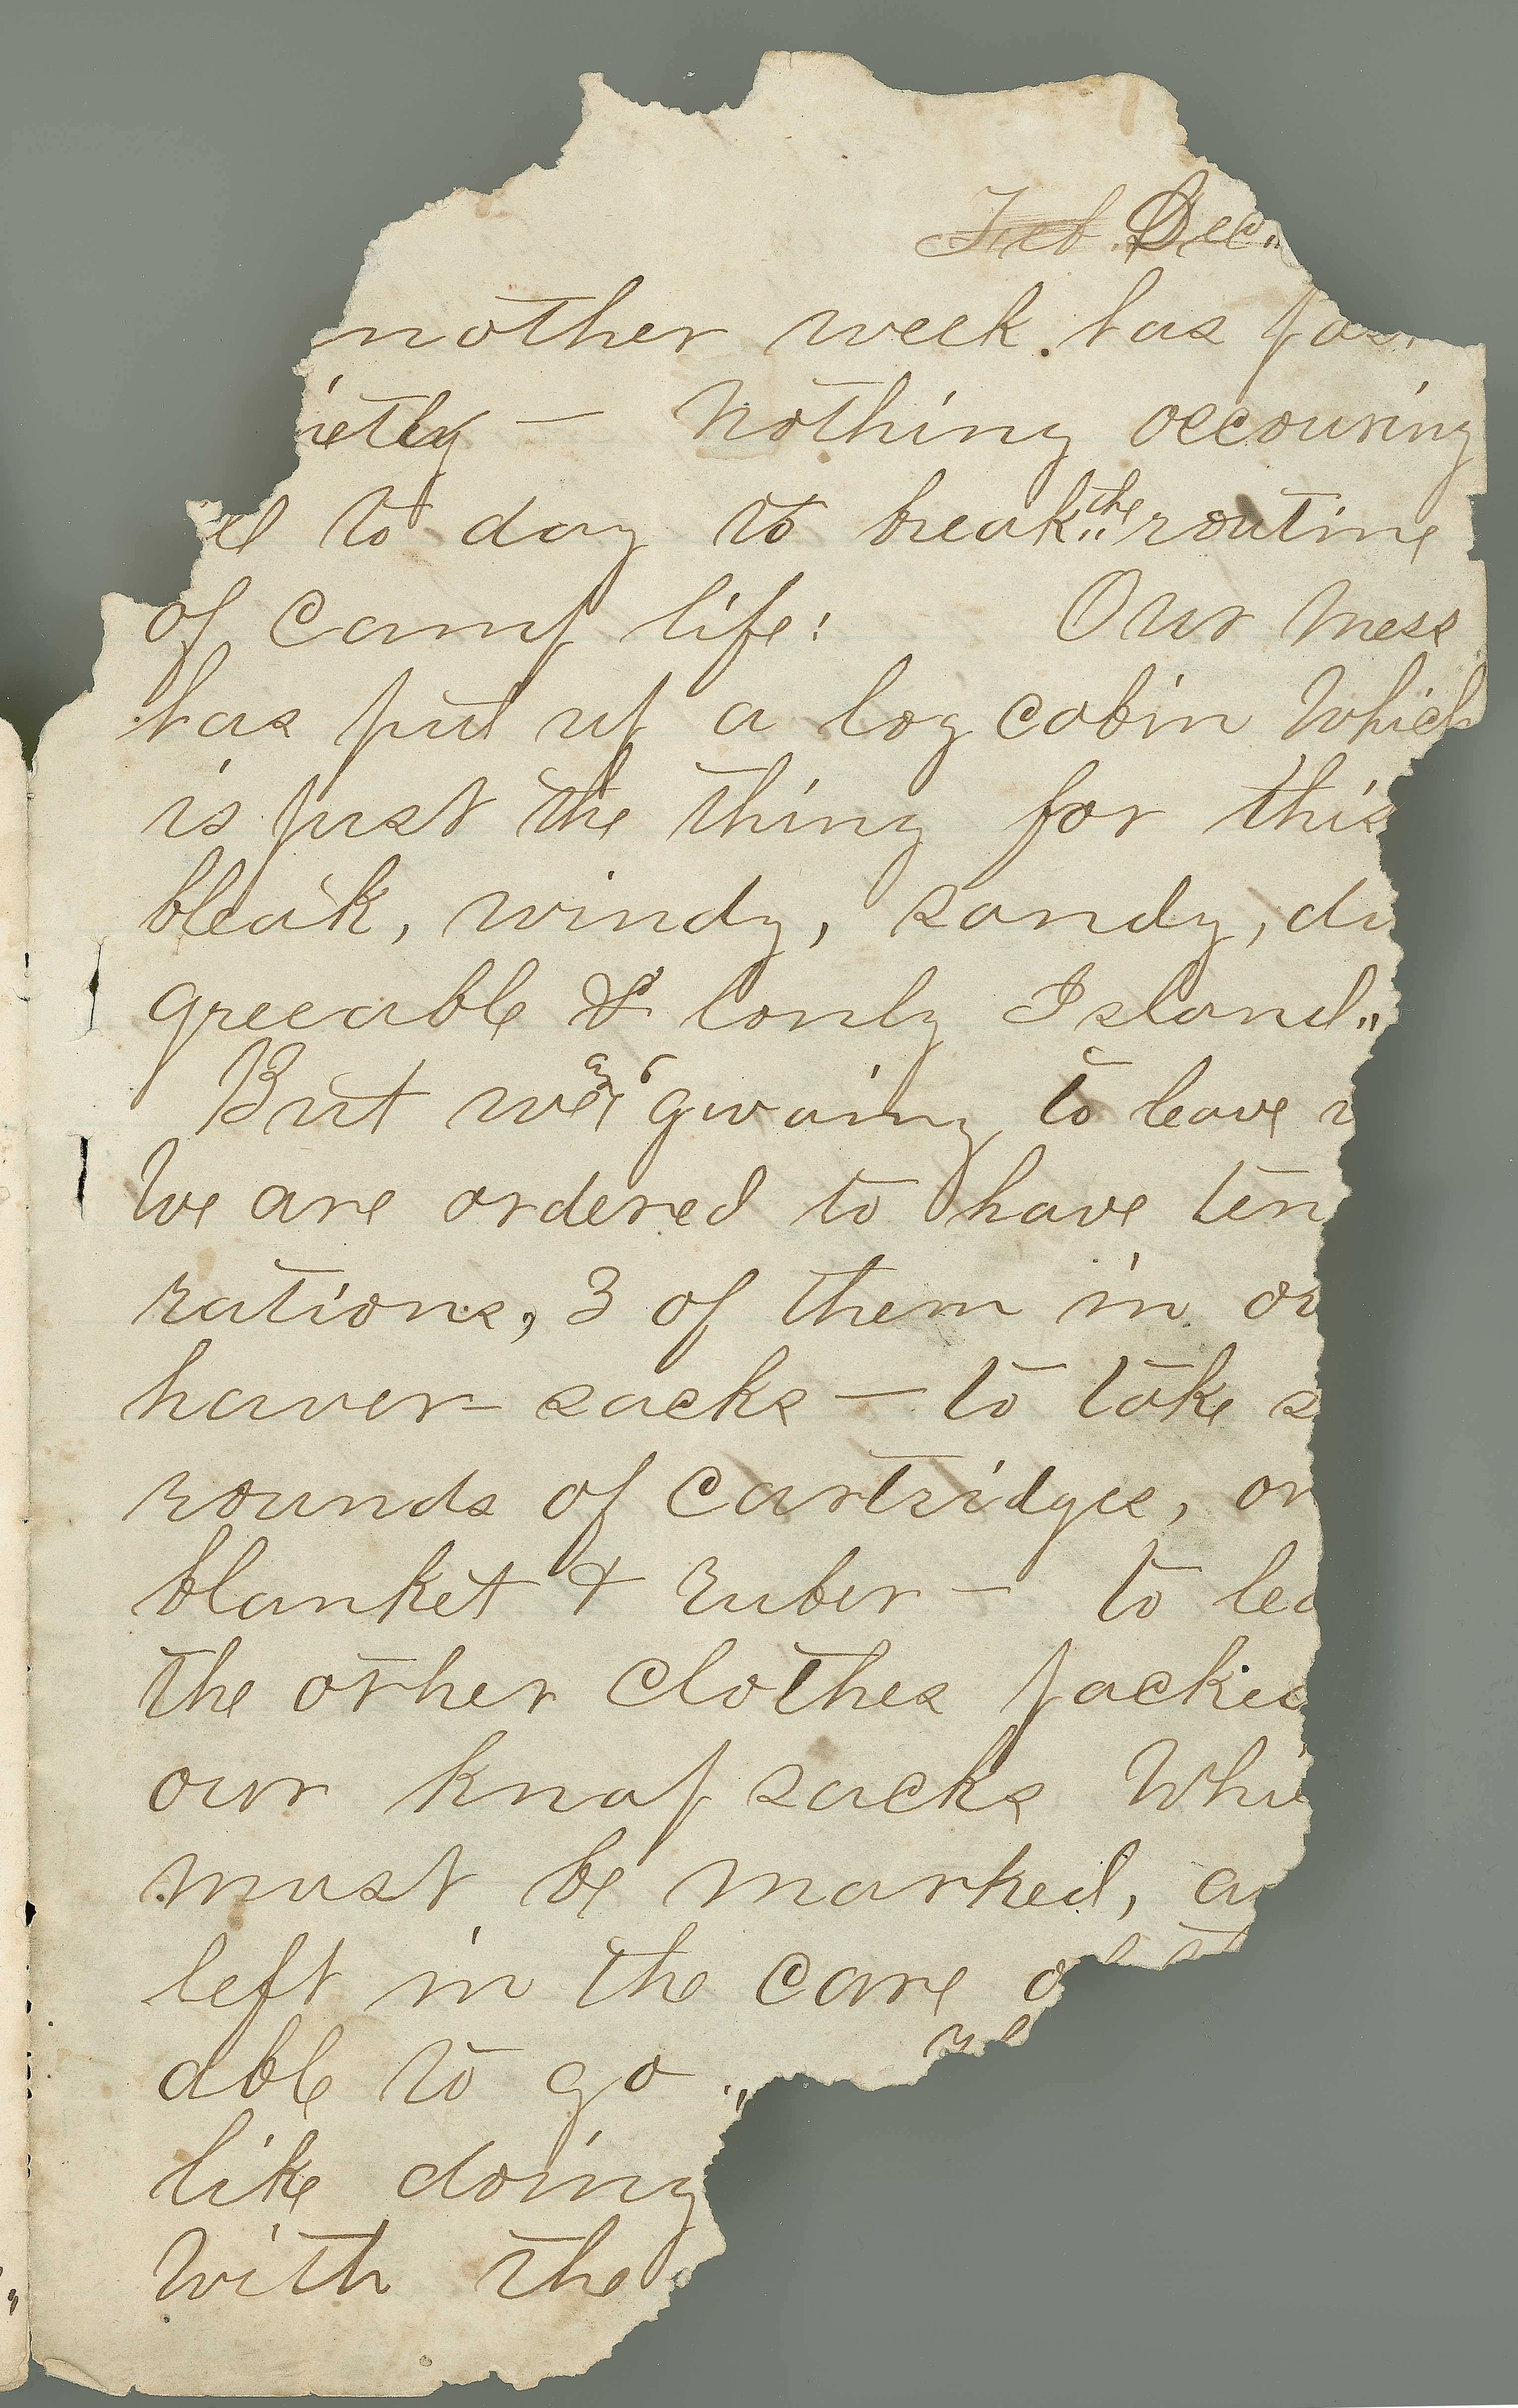 Feb. Dec.,,
nother week. has pas
ietly — Nothing occouring
ll to day to break the routine
of camp life: Our mess
has put up a log cabin Which
is just the thing for this
bleak, windy, sandy, di
greeable & lonly Island.,,
But we're gwaing to leave
We are ordered to have ten
rations, 3 of them in ou
haver-sacks — to take s
rounds of cartridges, on
blanket & ruber — to lea
the other clothes packed
our knap sacks Whi
must be marked, an
left in the care of th
able to go ,,
like doing
With the